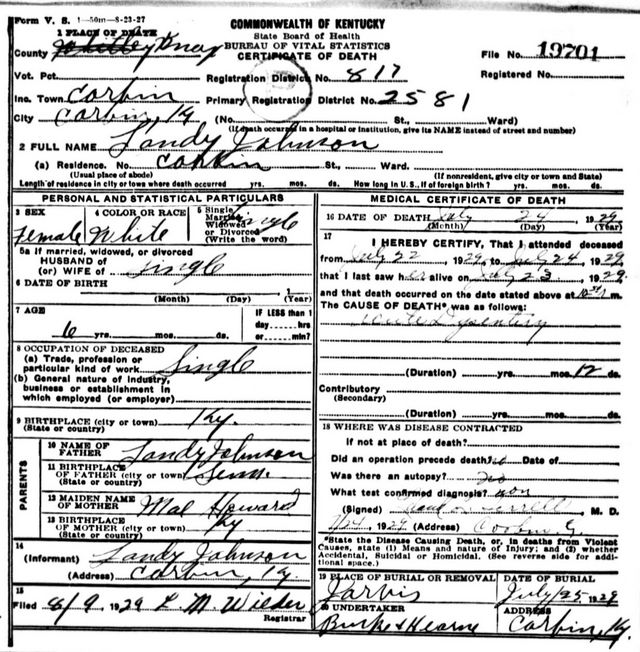 Form V. S. 1—50m—8-23-27
COMMONWEALTH OF KENTUCKY
State Board of Health
BUREAU OF VITAL STATISTICS
CERTIFICATE OF DEATH
1 PLACE OF DEATH
County Whitley Knox
File No. 19701
Vot. Pct.
Registration District No. 817
Registered No.
Inc. Town Corbin
Primary Registration District No. 2581
City Corbin, Ky (No. St., Ward)
(If death occurred in a hospital or institution, give its NAME instead of street and number)
2 FULL NAME Landy Johnson
(a) Residence. No. Corbin St., Ward.
(Usual place of abode) (If nonresident, give city or town and State)
Length of residence in city or town where death occurred yrs. mos. ds. How long in U. S., if of foreign birth? yrs. mos. ds.
PERSONAL AND STATISTICAL PARTICULARS
3 SEX 4 COLOR OR RACE 5 Single Married Widowed or Divorced (Write the word)
Female White Single
5a If married, widowed, or divorced
HUSBAND of
(or) WIFE of Single
6 DATE OF BIRTH
(Month) (Day) (Year)
7 AGE IF LESS than 1
6 yrs. mos. ds. day, hrs
or min?
8 OCCUPATION OF DECEASED
(a) Trade, profession or
particular kind of work Single
(b) General nature of industry,
business or establishment in
which employed (or employer)
9 BIRTHPLACE (city or town) Ky.
(State or country)
PARENTS
10 NAME OF
FATHER Landy Johnson
11 BIRTHPLACE
OF FATHER (city or town) Tenn.
(State or country)
12 MAIDEN NAME
OF MOTHER Mae Howard
13 BIRTHPLACE
OF MOTHER (city or town) Ky
(State or country)
14
(Informant) Landy Johnson
(Address) Corbin, Ky.
15
Filed 8/9 1929 L. M. Wilder
Registrar
MEDICAL CERTIFICATE OF DEATH
16 DATE OF DEATH July 24 1929
(Month) (Day) (Year)
17
I HEREBY CERTIFY, That I attended deceased
from July 22, 1929, to July 24, 1929
that I last saw her alive on July 23, 1929
and that death occurred on the date stated above at m.
The CAUSE OF DEATH* was as follows:
Acute Dysentery
(Duration) yrs. mos. 12 ds.
Contributory
(Secondary)
(Duration) yrs. mos. ds.
18 WHERE WAS DISEASE CONTRACTED
If not at place of death?
Did an operation precede death? no Date of
Was there an autopsy? no
What test confirmed diagnosis? non
(Signed) M. D.
7/24 1929 (Address) Corbin, Ky
*State the Disease Causing Death, or, in deaths from Violent
Causes, state (1) Means and nature of Injury; and (2) whether
Accidental, Suicidal or Homicidal. (See reverse side for addi-
tional space.)
19 PLACE OF BURIAL OR REMOVAL DATE OF BURIAL
Jarvis July 25 1929
20 UNDERTAKER ADDRESS
Burke & Hearne Corbin, Ky.